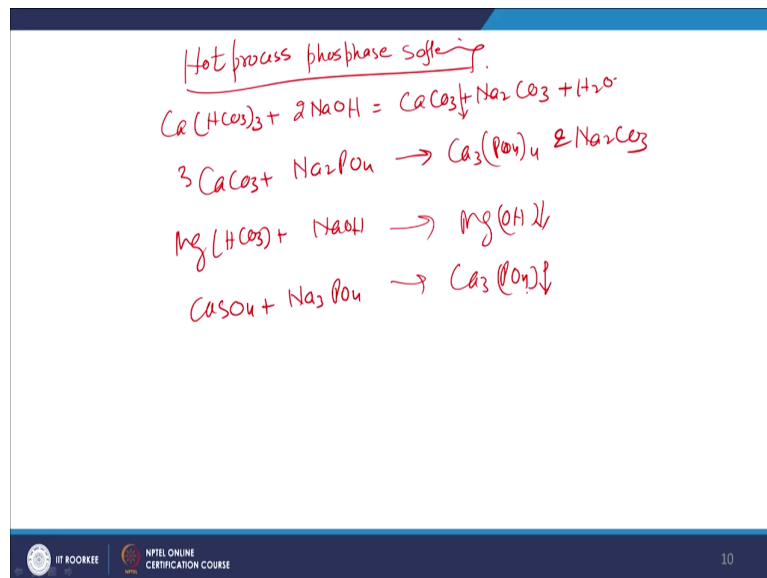 Hot process phosphase softening.
Ca(HCO3)3 + 2NaOH = CaCO3↓ + Na2CO3 + H2O
3CaCO3 + Na2PO4 → Ca3(PO4)4 & Na2CO3
Mg(HCO3) + NaOH → Mg(OH)↓
CaSO4 + Na3PO4 → Ca3(PO4)↓
IIT ROORKEE
NPTEL ONLINE
CERTIFICATION COURSE
10